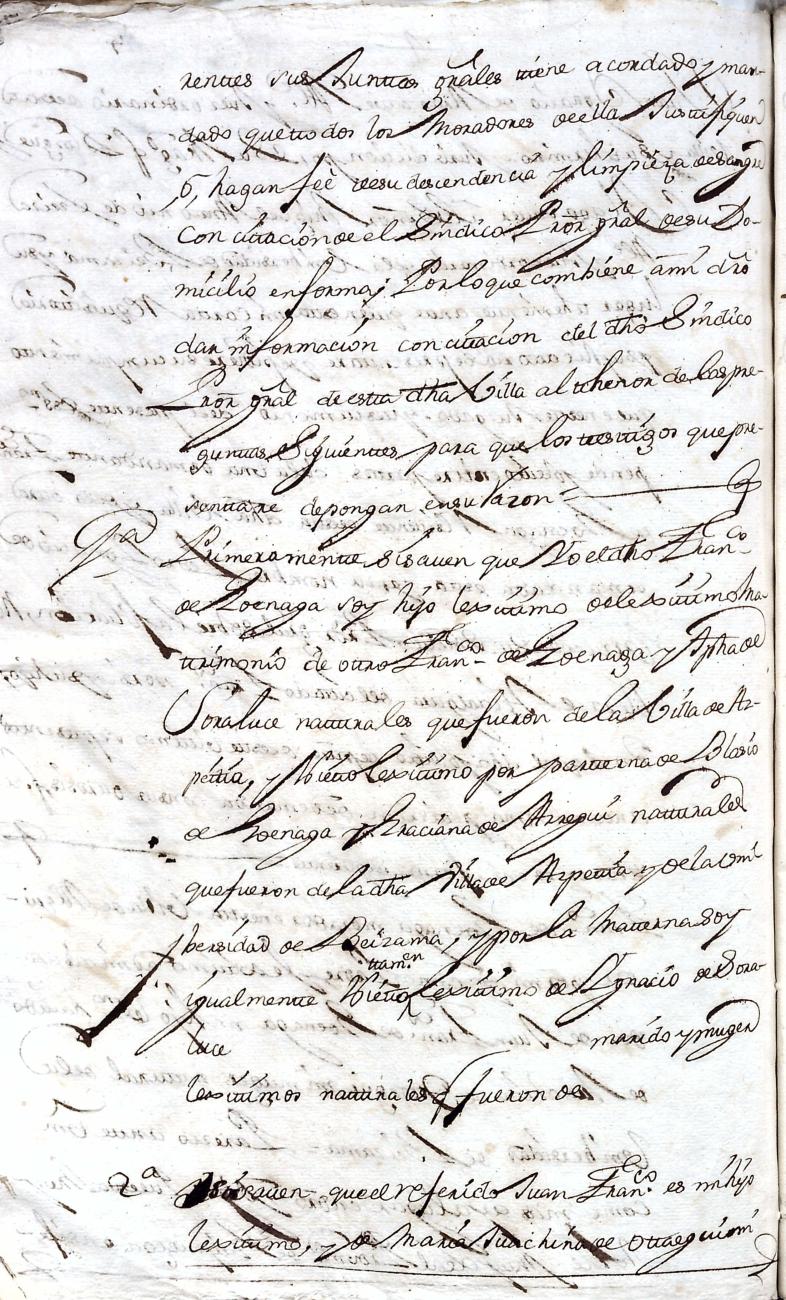 rentes sus Juntas grāles tiene acordado, y man-
dado que todos los Moradores de ella Justifiquen
ô, hagan feè de su descendencia y limpieza de sangre
con citacion de el Sindico Pror grāl de su Do-
micilio en forma; Por lo que combiene a mi dro
dar informacion con citacion del dho Sindico
Pror grāl de esta dha Villa al thenor de las pre-
guntas Siguientes para que los testigos que pre-
sentare depongan en su razon =
1ª Primeramente si saven que Yo el dho Franco
de Zoenaga soy hijo lexitimo de lexitimo Ma-
trimonio de otro Franco de Zoenaga y Apha de
Soraluce naturales que fueron de la Villa de Az-
peitia, y Nieto lexitimo por paterna de Blasio
de Zoenaga y Graciana de Arregui naturales
que fueron de la dha Villa de Azpeitia y de la Uni
bersidad de Beizama, y por la Materna soy
igualmente Nieto tamen lexitimo de Ygnacio de Sora-
luce marido y muger
lexitimos naturales q fueron de
2ª saven que el referido Juan Franco es mi hijo
lexitimo, y de Maria Juachina de Otaegui mi